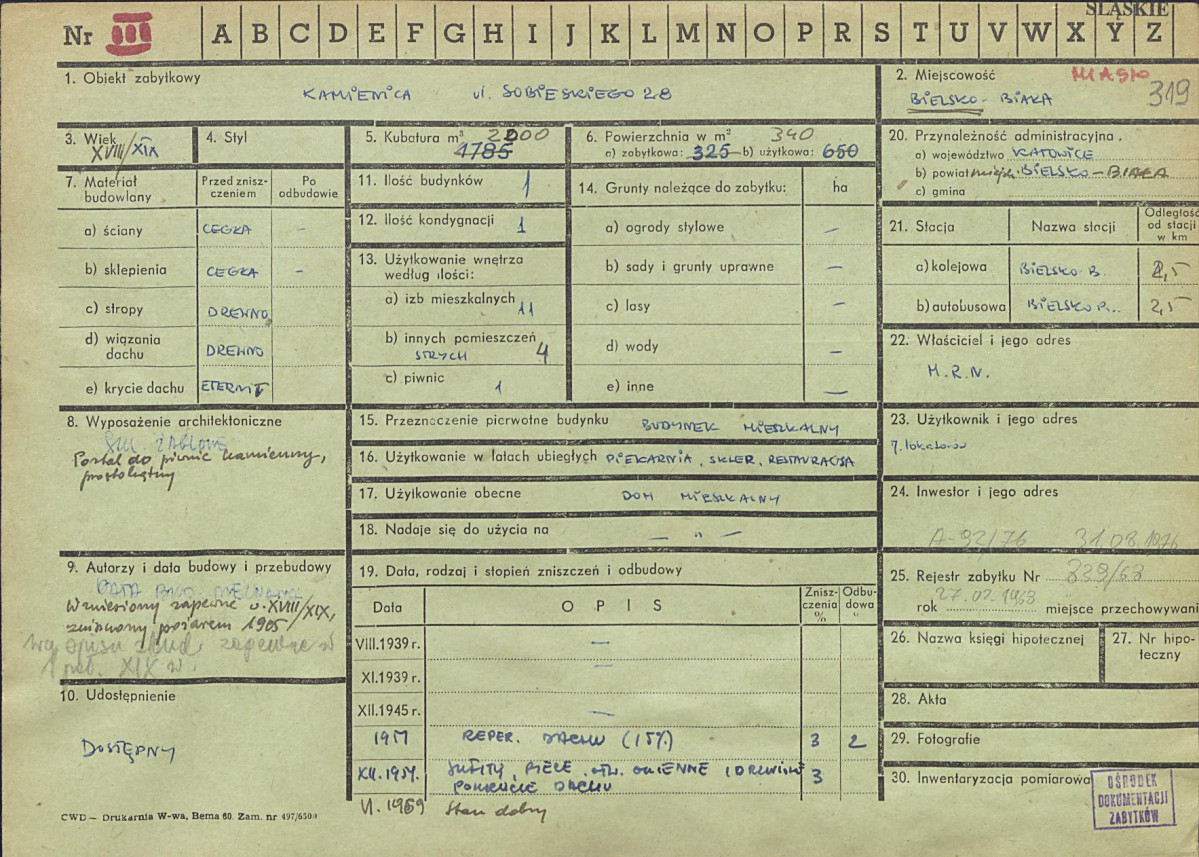 ŚLĄSKIE
Nr III A B C D E F G H I J K L M N O P R S T U V W X Y Z
1. Obiekt zabytkowy
KAMIENICA ul. SOBIESKIEGO 28
2. Miejscowość MIASTO
BIELSKO-BIAŁA 319
3. Wiek
XVIII/XIX
4. Styl
5. Kubatura m³ 2000
1785
6. Powierzchnia w m² 340
a) zabytkowa: 325 b) użytkowa: 650
7. Materiał budowlany
Przed zniszczeniem
Po odbudowie
a) ściany CEGŁA –
b) sklepienia CEGŁA –
c) stropy DREWNO
d) wiązania dachu DREWNO
e) krycie dachu ETERNIT
8. Wyposażenie architektoniczne
Portal do piwnic kamienny,
prostokątny
9. Autorzy i data budowy i przebudowy
Wzniesiony zapewne k. XVIII/XIX,
zniszczony pożarem 1905
zapewne w
1 poł. XIX w
10. Udostępnienie
DOSTĘPNY
11. Ilość budynków 1
12. Ilość kondygnacji 1
13. Użytkowanie wnętrza
według ilości:
a) izb mieszkalnych 11
b) innych pomieszczeń
STRYCH 4
c) piwnic 1
14. Grunty należące do zabytku: ha
a) ogrody stylowe –
b) sady i grunty uprawne –
c) lasy –
d) wody –
e) inne –
15. Przeznaczenie pierwotne budynku BUDYNEK MIESZKALNY
16. Użytkowanie w latach ubiegłych PIEKARNIA, SKLEP, RESTAURACJA
17. Użytkowanie obecne DOM MIESZKALNY
18. Nadaje się do użycia na – " –
19. Data, rodzaj i stopień zniszczeń i odbudowy
Data OPIS Zniszczenia % Odbudowa "
VIII.1939 r. –
XI.1939 r. –
XII.1945 r. –
1951 REPER. DACHU (15%) 3 2
XII.1957. SUFITY, PIECE, OTW. OKIENNE I DRZWIOWE 3
POKRYCIE DACHU
VI.1969 Stan dobry
20. Przynależność administracyjna.
a) województwo KATOWICE
b) powiat miejski BIELSKO-BIAŁA
c) gmina
21. Stacja Nazwa stacji Odległość od stacji w km
a) kolejowa BIELSKO-B. 2,5
b) autobusowa BIELSKO B.. 2,5
22. Właściciel i jego adres
M.R.N.
23. Użytkownik i jego adres
7. lokatorów
24. Inwestor i jego adres
A-92/76 31.08.1976
25. Rejestr zabytku Nr 329/63
27.02.1963
rok miejsce przechowywani
26. Nazwa księgi hipotecznej
27. Nr hipoteczny
28. Akta
29. Fotografie
30. Inwentaryzacja pomiarowa
OŚRODEK
DOKUMENTACJI
ZABYTKÓW
CWD — Drukarnia W-wa, Bema 60. Zam. nr 497/6500